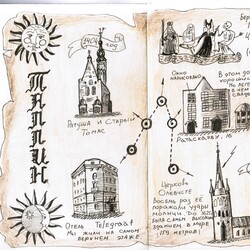 ТАЛЛИН
1404
год
Ратуша и Старый
Томас
Отель Telegraaf
Мы жили на самом
верхнем этаже.
Окно
нарисовано
В этом до
Ратаскаеву, 16
Церковь
Олевисте
Восемь раз её
поражали удары
молнии. До 1625
была самым высоким
зданием в мире
(159 метров)